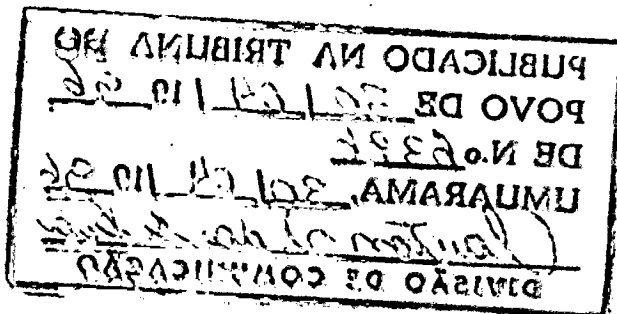 PUBLICADO NA TRIBUNA DO
POVO DE 30/04/19 96
DE N.o
UMUARAMA, 30/04/19 96
DIVISÃO DE COMUNICAÇÃO